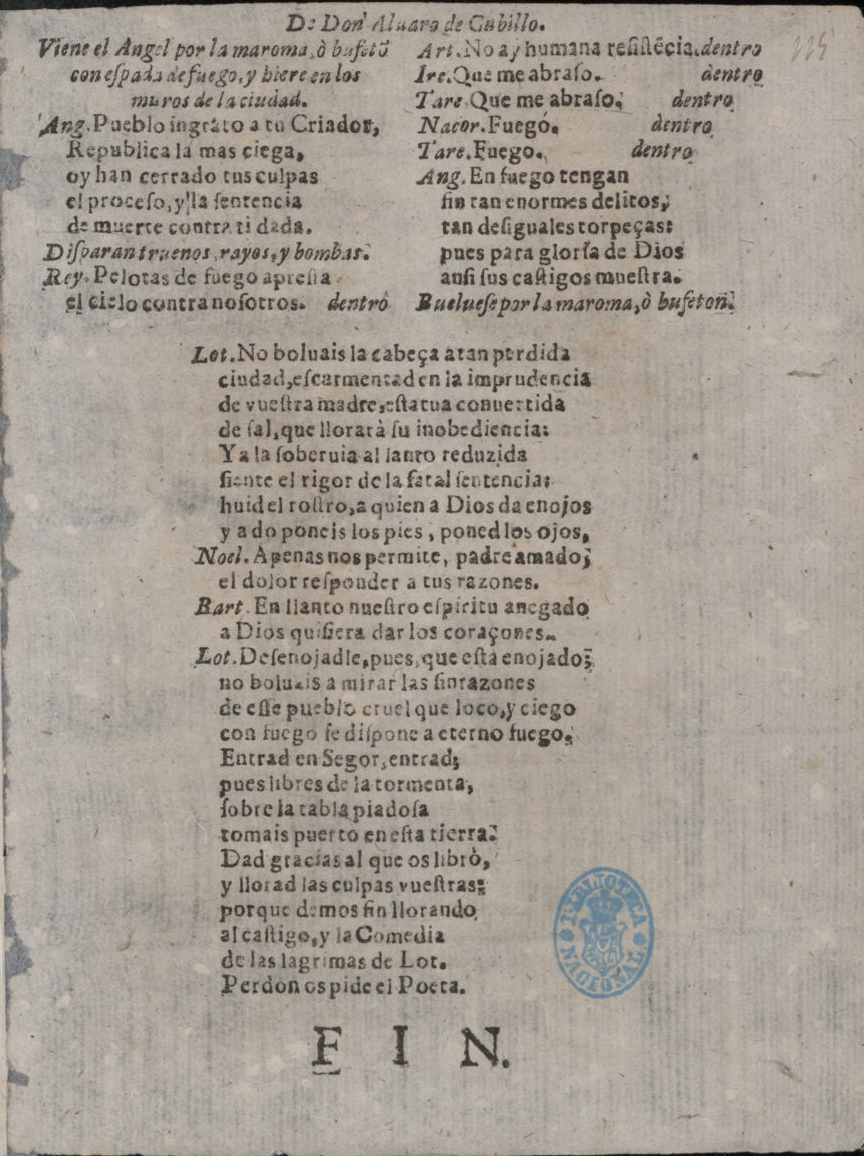 De Don Aluaro de Cubillo.
Viene el Angel por la maroma, ò bufetõ
con espada de fuego, y hiere en los
muros de la ciudad.
Ang. Pueblo ingrato a tu Criador,
Republica la mas ciega,
oy han cerrado tus culpas
el processo, y la sentencia
de muerte contra ti dada.
Disparan truenos, rayos, y bombas.
Rey. Pelotas de fuego apresta
el cielo contra nosotros. dentro
Art. No ay humana resistẽcia. dentro
Ire. Que me abraso. dentro
Tare. Que me abraso. dentro
Nacor. Fuego. dentro
Tare. Fuego. dentro
Ang. En fuego tengan
fin tan enormes delitos,
tan desiguales torpeças:
pues para gloria de Dios
ansi sus castigos muestra.
Bueluese por la maroma, ò bufeton.
Lot. No boluais la cabeça a tan perdida
ciudad, escarmentad en la imprudencia
de vuestra madre, estatua conuertida
de sal, que llorarà su inobediencia:
Ya la soberuia al llanto reduzida
siente el rigor de la fatal sentencia:
huid el rostro, a quien a Dios da enojos
y a do poneis los pies, poned los ojos,
Noel. Apenas nos permite, padre amado,
el dolor responder a tus razones.
Bart. En llanto nuestro espiritu anegado
a Dios quisiera dar los coraçones.
Lot. Desenojadle, pues, que està enojado;
no boluais a mirar las sinrazones
de esse pueblo cruel que loco, y ciego
con fuego se dispone a eterno fuego.
Entrad en Segor, entrad;
pues libres de la tormenta,
sobre la tabla piadosa
tomais puerto en esta tierra.
Dad gracias al que os librò,
y llorad las culpas vuestras;
porque demos fin llorando
al castigo, y la Comedia
de las lagrimas de Lot.
Perdon os pide el Poeta.
F I N.
BIBLIOTECA NACIONAL